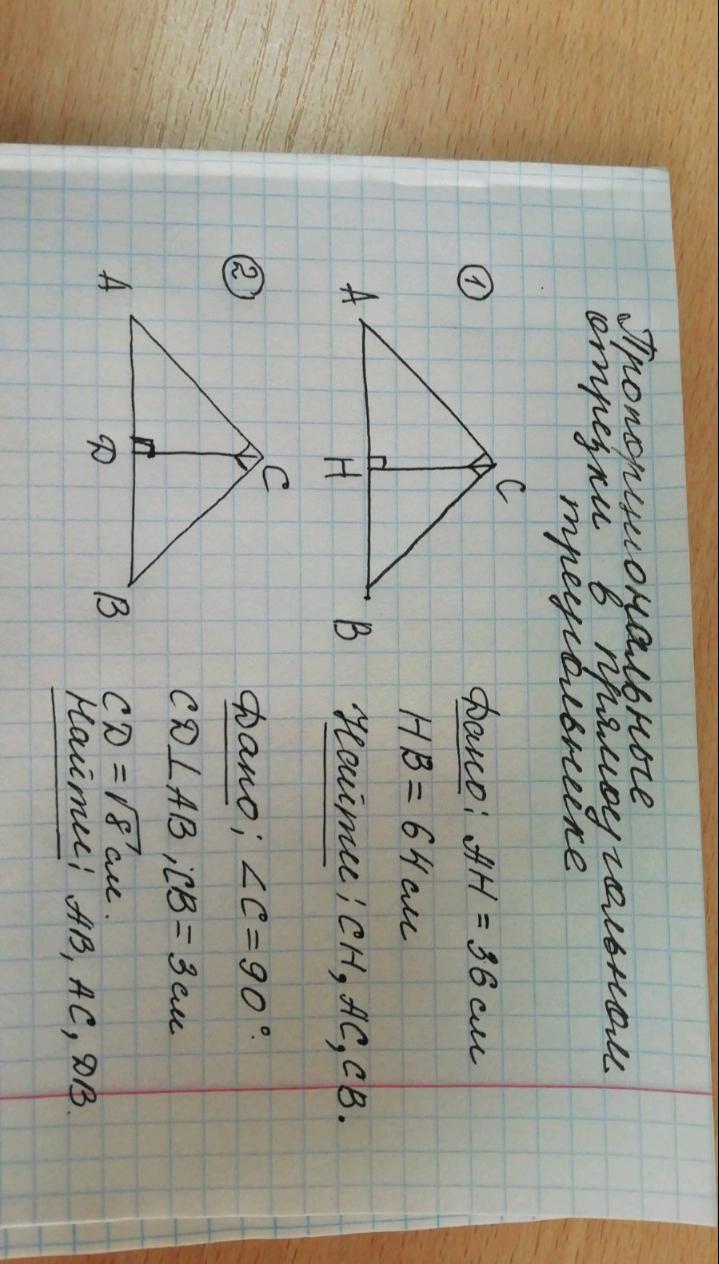 Пропорциональные
отрезки в прямоугольном
треугольнике
①
C
A
H
B
Дано: AH = 36 см
HB = 64 см
Найти: CH, AC, CB.
②
C
A
D
B
Дано: ∠C = 90°.
CD ⊥ AB, CB = 3 см
CD = √8 см.
Найти: AB, AC, DB.